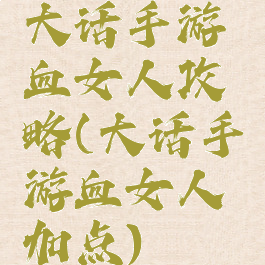 大话手游
血女人攻
略(大话手
游血女人
加点)